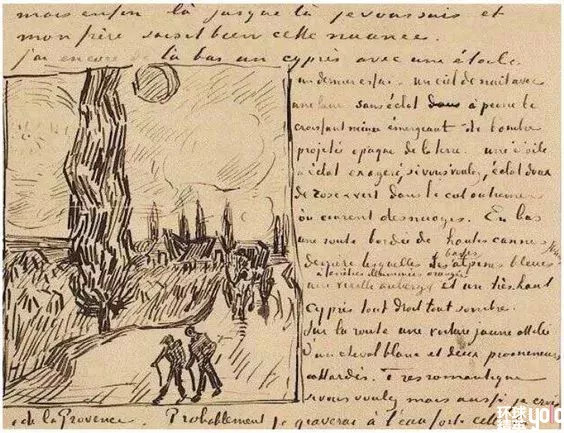 mais enfin là jusque là je vous suis et
mon frère saisit bien cette nuance.
j'ai encore de là bas un cyprès avec une étoile
un dernier essai – un ciel de nuit avec
une lune sans éclat à peine le
croissant mince émergeant de l'ombre
projetée opaque de la terre – une étoile
à éclat exagéré, si vous voulez, éclat doux
de rose & vert dans le ciel outremer
où courent des nuages. En bas
une route bordée de hautes cannes
derrière lesquelles les basses alpines bleues
à fenêtres illuminées orangée
une vieille auberge et un très haut
cyprès tout droit tout sombre.
Sur la route une voiture jaune attelée
d'un cheval blanc et deux promeneurs
attardés. Très romantique
si vous voulez mais aussi je crois
de la Provence. Probablement je graverai à l'eau forte celle
环球